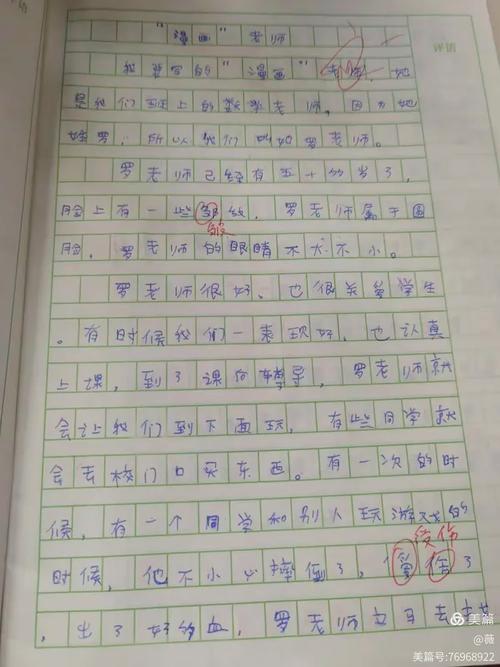 "漫画"老师
评语
我要写的"漫画"老师，她
是我们班上的数学老师，因为她
姓罗，所以我们叫她罗老师。
罗老师已经有五十的岁了，
脸上有一些皱纹。罗老师属于圆
皱
脸，罗老师的眼睛不大不小。
罗老师很好、也很关爱学生
。有时候我们一表现好，也认真
上课，到了课后辅导，罗老师就
会让我们到下面玩，有些同学就
会去校门口买东西。有一次的时
候，有一个同学和别人玩游戏的
受伤
时候，他不小心摔倒了，受伤了
，出了好的血，罗老师立马去
美篇
@薇
美篇号:76968922